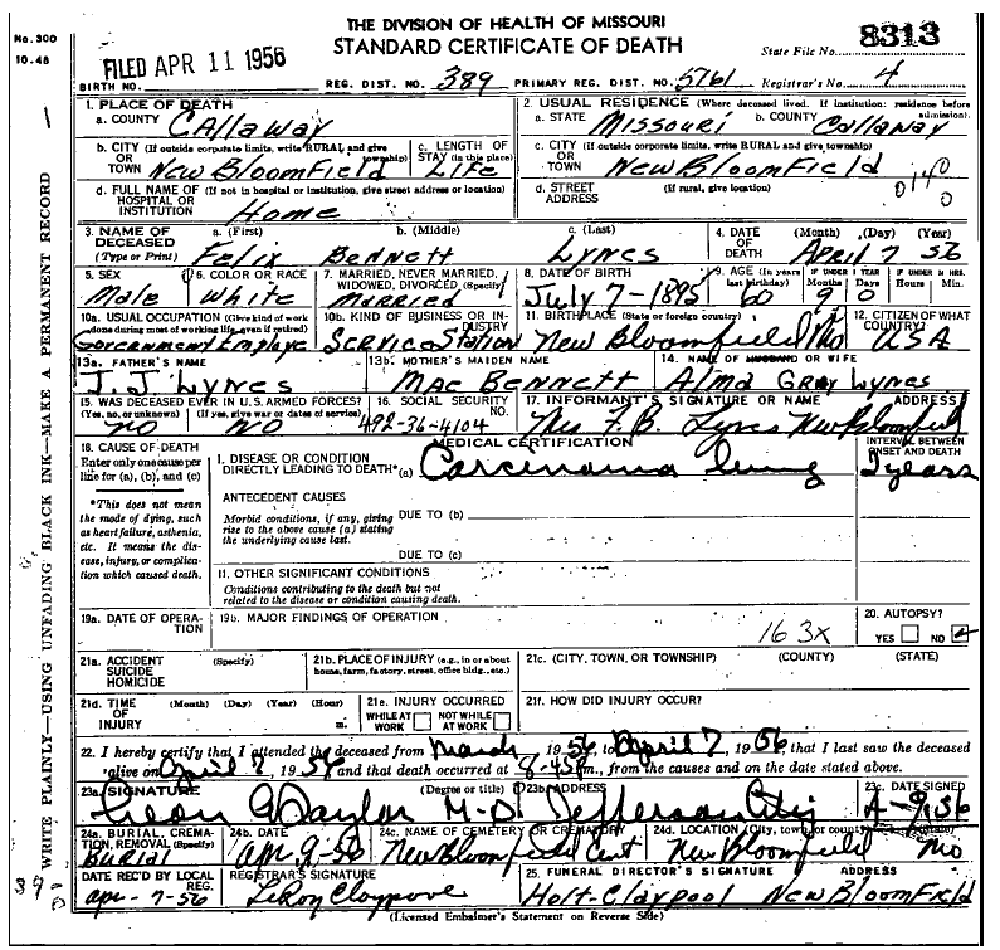 THE DIVISION OF HEALTH OF MISSOURI
STANDARD CERTIFICATE OF DEATH
No. 300
10.48
FILED APR 11 1956
State File No. 8313
BIRTH NO. REG. DIST. NO. 389 PRIMARY REG. DIST. NO. 5761 Registrar's No. 4
1. PLACE OF DEATH
a. COUNTY Callaway
2. USUAL RESIDENCE (Where deceased lived. If institution: residence before admission).
a. STATE Missouri b. COUNTY Callaway
b. CITY (If outside corporate limits, write RURAL and give township) OR TOWN New Bloomfield
c. LENGTH OF STAY (in this place) Life
c. CITY (If outside corporate limits, write RURAL and give township) OR TOWN New Bloomfield
d. FULL NAME OF (If not in hospital or institution, give street address or location) HOSPITAL OR INSTITUTION Home
d. STREET ADDRESS (If rural, give location)
0140
0
3. NAME OF DECEASED (Type or Print)
a. (First) Felix b. (Middle) Bennett c. (Last) Lynes
4. DATE OF DEATH (Month) (Day) (Year) April 7 56
5. SEX Male
6. COLOR OR RACE White
7. MARRIED, NEVER MARRIED, WIDOWED, DIVORCED (Specify) Married
8. DATE OF BIRTH July 7-1895
9. AGE (In years last birthday) 60 IF UNDER 1 YEAR Months 9 Days 0 IF UNDER 24 HRS. Hours Min.
10a. USUAL OCCUPATION (Give kind of work done during most of working life, even if retired) Government Employe
10b. KIND OF BUSINESS OR INDUSTRY Service Station
11. BIRTHPLACE (State or foreign country) New Bloomfield Mo
12. CITIZEN OF WHAT COUNTRY? USA
13a. FATHER'S NAME J. J. Lynes
13b. MOTHER'S MAIDEN NAME Mae Bennett
14. NAME OF HUSBAND OR WIFE Alma Gray Lynes
15. WAS DECEASED EVER IN U.S. ARMED FORCES? (Yes, no, or unknown) No (If yes, give war or dates of service) No
16. SOCIAL SECURITY NO. 492-36-4104
17. INFORMANT'S SIGNATURE OR NAME ADDRESS Mrs F. B. Lynes New Bloomfield
18. CAUSE OF DEATH
Enter only one cause per line for (a), (b), and (c)
*This does not mean the mode of dying, such as heart failure, asthenia, etc. It means the disease, injury, or complication which caused death.
MEDICAL CERTIFICATION
I. DISEASE OR CONDITION DIRECTLY LEADING TO DEATH* (a) Carcinoma lung
INTERVAL BETWEEN ONSET AND DEATH years
ANTECEDENT CAUSES
Morbid conditions, if any, giving rise to the above cause (a) stating the underlying cause last.
DUE TO (b)
DUE TO (c)
II. OTHER SIGNIFICANT CONDITIONS
Conditions contributing to the death but not related to the disease or condition causing death.
19a. DATE OF OPERATION
19b. MAJOR FINDINGS OF OPERATION
163X
20. AUTOPSY?
YES NO
21a. ACCIDENT SUICIDE HOMICIDE (Specify)
21b. PLACE OF INJURY (e.g., in or about home, farm, factory, street, office bldg., etc.)
21c. (CITY, TOWN, OR TOWNSHIP) (COUNTY) (STATE)
21d. TIME OF INJURY (Month) (Day) (Year) (Hour) m.
21e. INJURY OCCURRED
WHILE AT WORK NOT WHILE AT WORK
21f. HOW DID INJURY OCCUR?
22. I hereby certify that I attended the deceased from March, 1956 to April 7, 1956, that I last saw the deceased
alive on April 7, 1956 and that death occurred at 8-45 Pm., from the causes and on the date stated above.
23a. SIGNATURE (Degree or title) Leon G Taylor M.D.
23b. ADDRESS Jefferson City
23c. DATE SIGNED 4-9-56
24a. BURIAL, CREMATION, REMOVAL (Specify) Burial
24b. DATE Apr. 9-56
24c. NAME OF CEMETERY OR CREMATORY New Bloomfield Cemt
24d. LOCATION (City, town, or county) (State) New Bloomfield Mo
DATE REC'D BY LOCAL REG. Apr-7-56
REGISTRAR'S SIGNATURE LeRoy Claypool
25. FUNERAL DIRECTOR'S SIGNATURE ADDRESS Holt-Claypool New Bloomfield
(Licensed Embalmer's Statement on Reverse Side)
WRITE PLAINLY—USING UNFADING BLACK INK—MAKE A PERMANENT RECORD